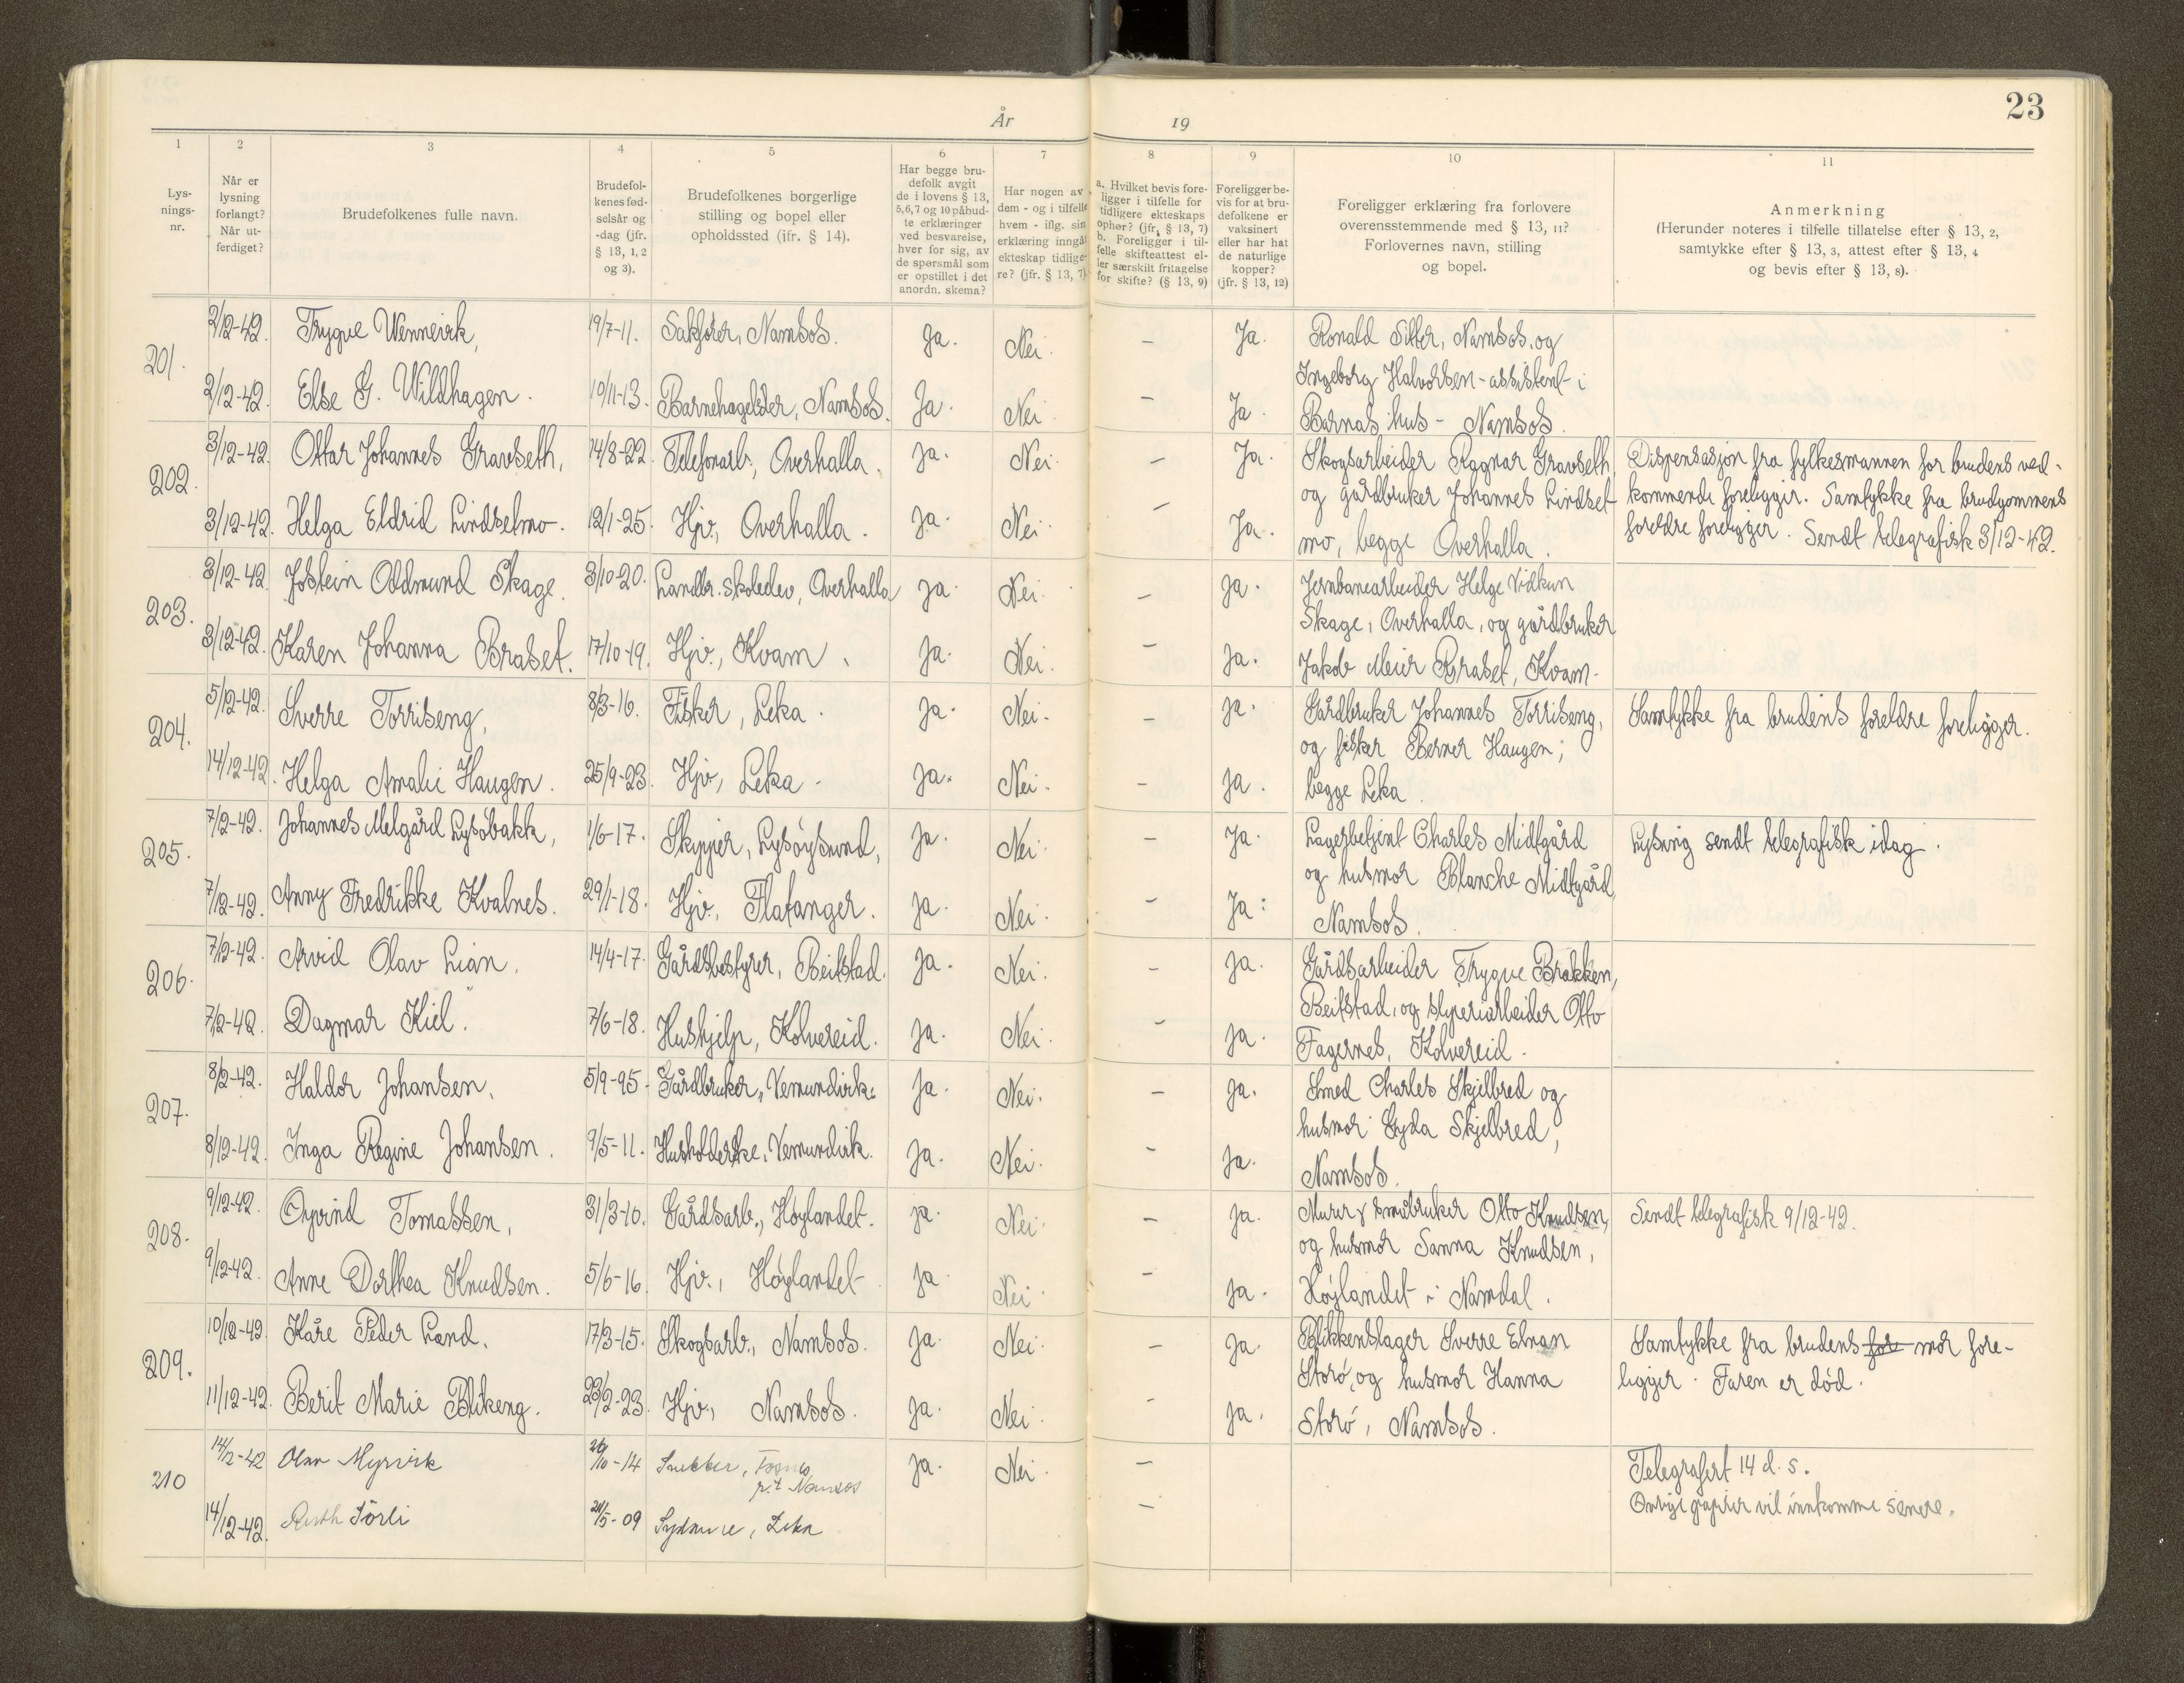 23
År 19
1 2 3 4 5 6 7 8 9 10 11
Lys-
nings-
nr.
Når er
lysning
forlangt?
Når ut-
ferdiget?
Brudefolkenes fulle navn.
Brudefol-
kenes fød-
selsår og
-dag (jfr.
§ 13, 1, 2
og 3).
Brudefolkenes borgerlige
stilling og bopel eller
opholdssted (jfr. § 14).
Har begge bru-
defolk avgit
de i lovens § 13,
5, 6, 7 og 10 påbud-
te erklæringer
ved besvarelse,
hver for sig, av
de spørsmål som
er opstillet i det
anordn. skema?
Har nogen av
dem - og i tilfelle
hvem - iflg. sin
erklæring inngåt
ekteskap tidlige-
re? (jfr. § 13, 7)
a. Hvilket bevis fore-
ligger i tilfelle for
tidligere ekteskaps
ophør? (jfr. § 13, 7)
b. Foreligger i til-
felle skifteattest el-
ler særskilt fritagelse
for skifte? (§ 13, 9)
Foreligger be-
vis for at bru-
defolkene er
vaksinert
eller har hat
de naturlige
kopper?
(jfr. § 13, 12)
Foreligger erklæring fra forlovere
overensstemmende med § 13, 11?
Forlovernes navn, stilling
og bopel.
Anmerkning
(Herunder noteres i tilfelle tillatelse efter § 13, 2,
samtykke efter § 13, 3, attest efter § 13, 4
og bevis efter § 13, 8).
201.
2/12-42. Trygve Wennevik, 19/7-11. Sakfører, Namsos. Ja. Nei. – Ja.
2/12-42. Else G. Wildhagen. 10/11-13. Barnehageleder, Namsos. Ja. Nei. – Ja.
Ronald Sitter, Namsos, og
Ingeborg Halvorsen - assistent i
Barnas hus - Namsos.
202.
3/12-42. Ottar Johannes Gravseth, 14/8-22. Telefonarb., Overhalla. Ja. Nei. – Ja.
3/12-42. Helga Eldrid Lindselmo. 12/1-25. Hjv., Overhalla. Ja. Nei. – Ja.
Skogsarbeider Ragnar Gravseth
og gårdbruker Johannes Lindset-
mo, begge Overhalla.
Dispensasjon fra fylkesmannen for brudens ved-
kommende foreligger. Samtykke fra brudgommens
foreldre foreligger. Sendt telegrafisk 3/12-42.
203.
3/12-42. Jostein Oddmund Skage. 3/10-20. Landbr. skoleelev, Overhalla Ja. Nei. – Ja.
3/12-42. Karen Johanna Braset. 17/10-19. Hjv., Kvam. Ja. Nei. – Ja.
Jernbanearbeider Helge Vidkun
Skage, Overhalla, og gårdbruker
Jakob Meier Braset, Kvam.
204.
5/12-42. Sverre Torriseng, 8/3-16. Fisker, Leka. Ja. Nei. – Ja.
14/12-42. Helga Amalie Haugen. 25/9-23. Hjv, Leka. Ja. Nei. – Ja.
Gårdbruker Johannes Torriseng,
og fisker Berner Haugen;
begge Leka.
Samtykke fra brudens foreldre foreligger.
205.
7/12-42. Johannes Melgård Lysøbakk, 1/6-17. Skipper, Lysøysund, Ja. Nei. – Ja.
7/12-42. Anny Fredrikke Kvalnes. 29/1-18. Hjv., Flatanger. Ja. Nei. – Ja.
Lagerbetjent Charles Midtgård
og husmor Blanche Midtgård,
Namsos.
Lysning sendt telegrafisk idag.
206.
7/12-42. Arvid Olav Lian. 14/4-17. Gårdsbestyrer, Beitstad. Ja. Nei. – Ja.
7/12-42. Dagmar Kiel. 7/6-18. Hushjelp, Kolvereid. Ja. Nei. – Ja.
Gårdsarbeider Trygve Brekken,
Beitstad, og sliperiarbeider Otto
Fagernes, Kolvereid.
207.
8/12-42. Haldor Johansen, 5/9-95. Gårdbruker, Vemundvik. Ja. Nei. – Ja.
8/12-42. Inga Regine Johansen. 9/5-11. Husholderske, Vemundvik. Ja. Nei. – Ja.
Smed Charles Skjelbred og
husmor Gyda Skjelbred,
Namsos.
208.
9/12-42. Øyvind Tomassen, 31/3-10. Gårdsarb., Høylandet. Ja. Nei. – Ja.
9/12-42. Anne Dorthea Knudsen. 5/6-16. Hjv., Høylandet Ja. Nei. – Ja.
Murer & småbruker Otto Knudsen,
og husmor Sanna Knudsen,
Høylandet i Namdal.
Sendt telegrafisk 9/12-42.
209.
10/12-42. Kåre Peder Lænd. 17/3-15. Skogsarb., Namsos. Ja. Nei. – Ja.
11/12-42. Berit Marie Blikeng. 23/2-23. Hjv., Namsos. Ja. Nei. – Ja.
Blikkenslager Sverre Elnan
Storø, og husmor Hanna
Storø, Namsos.
Samtykke fra brudens for mor fore-
ligger. Faren er død.
210
14/12-42 Olav Myrvik 26/10-14 Snekker, Fosnes, Ja. Nei. –
p.t. Namsos
14/12-42. Ruth Sørli 24/5-09 Sydame, Leka –
Telegrafert 14 d.s.
Øvrige papirer vil innkomme senere.